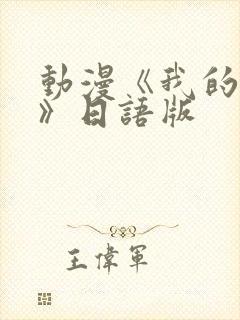 動漫《我的
》日語版
王偉軍